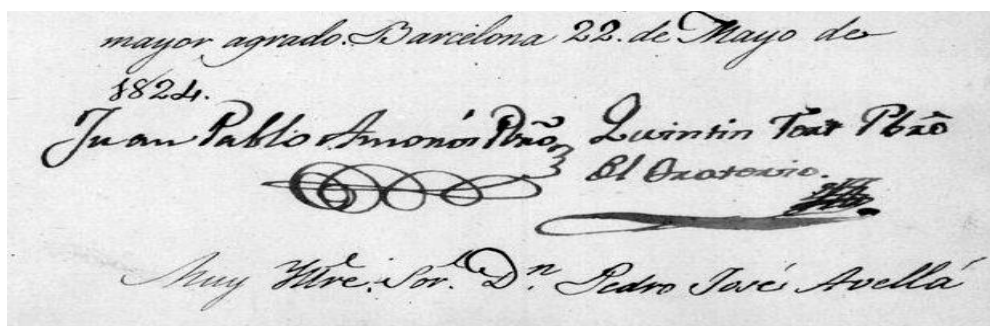 mayor agrado. Barcelona 22. de Mayo de
1824.
Juan Pablo Amonós Pbro̅ Quintin Tort Pbro̅
El Oratorio.
Muy Iltre. Sor. Dn. Pedro José Avellá